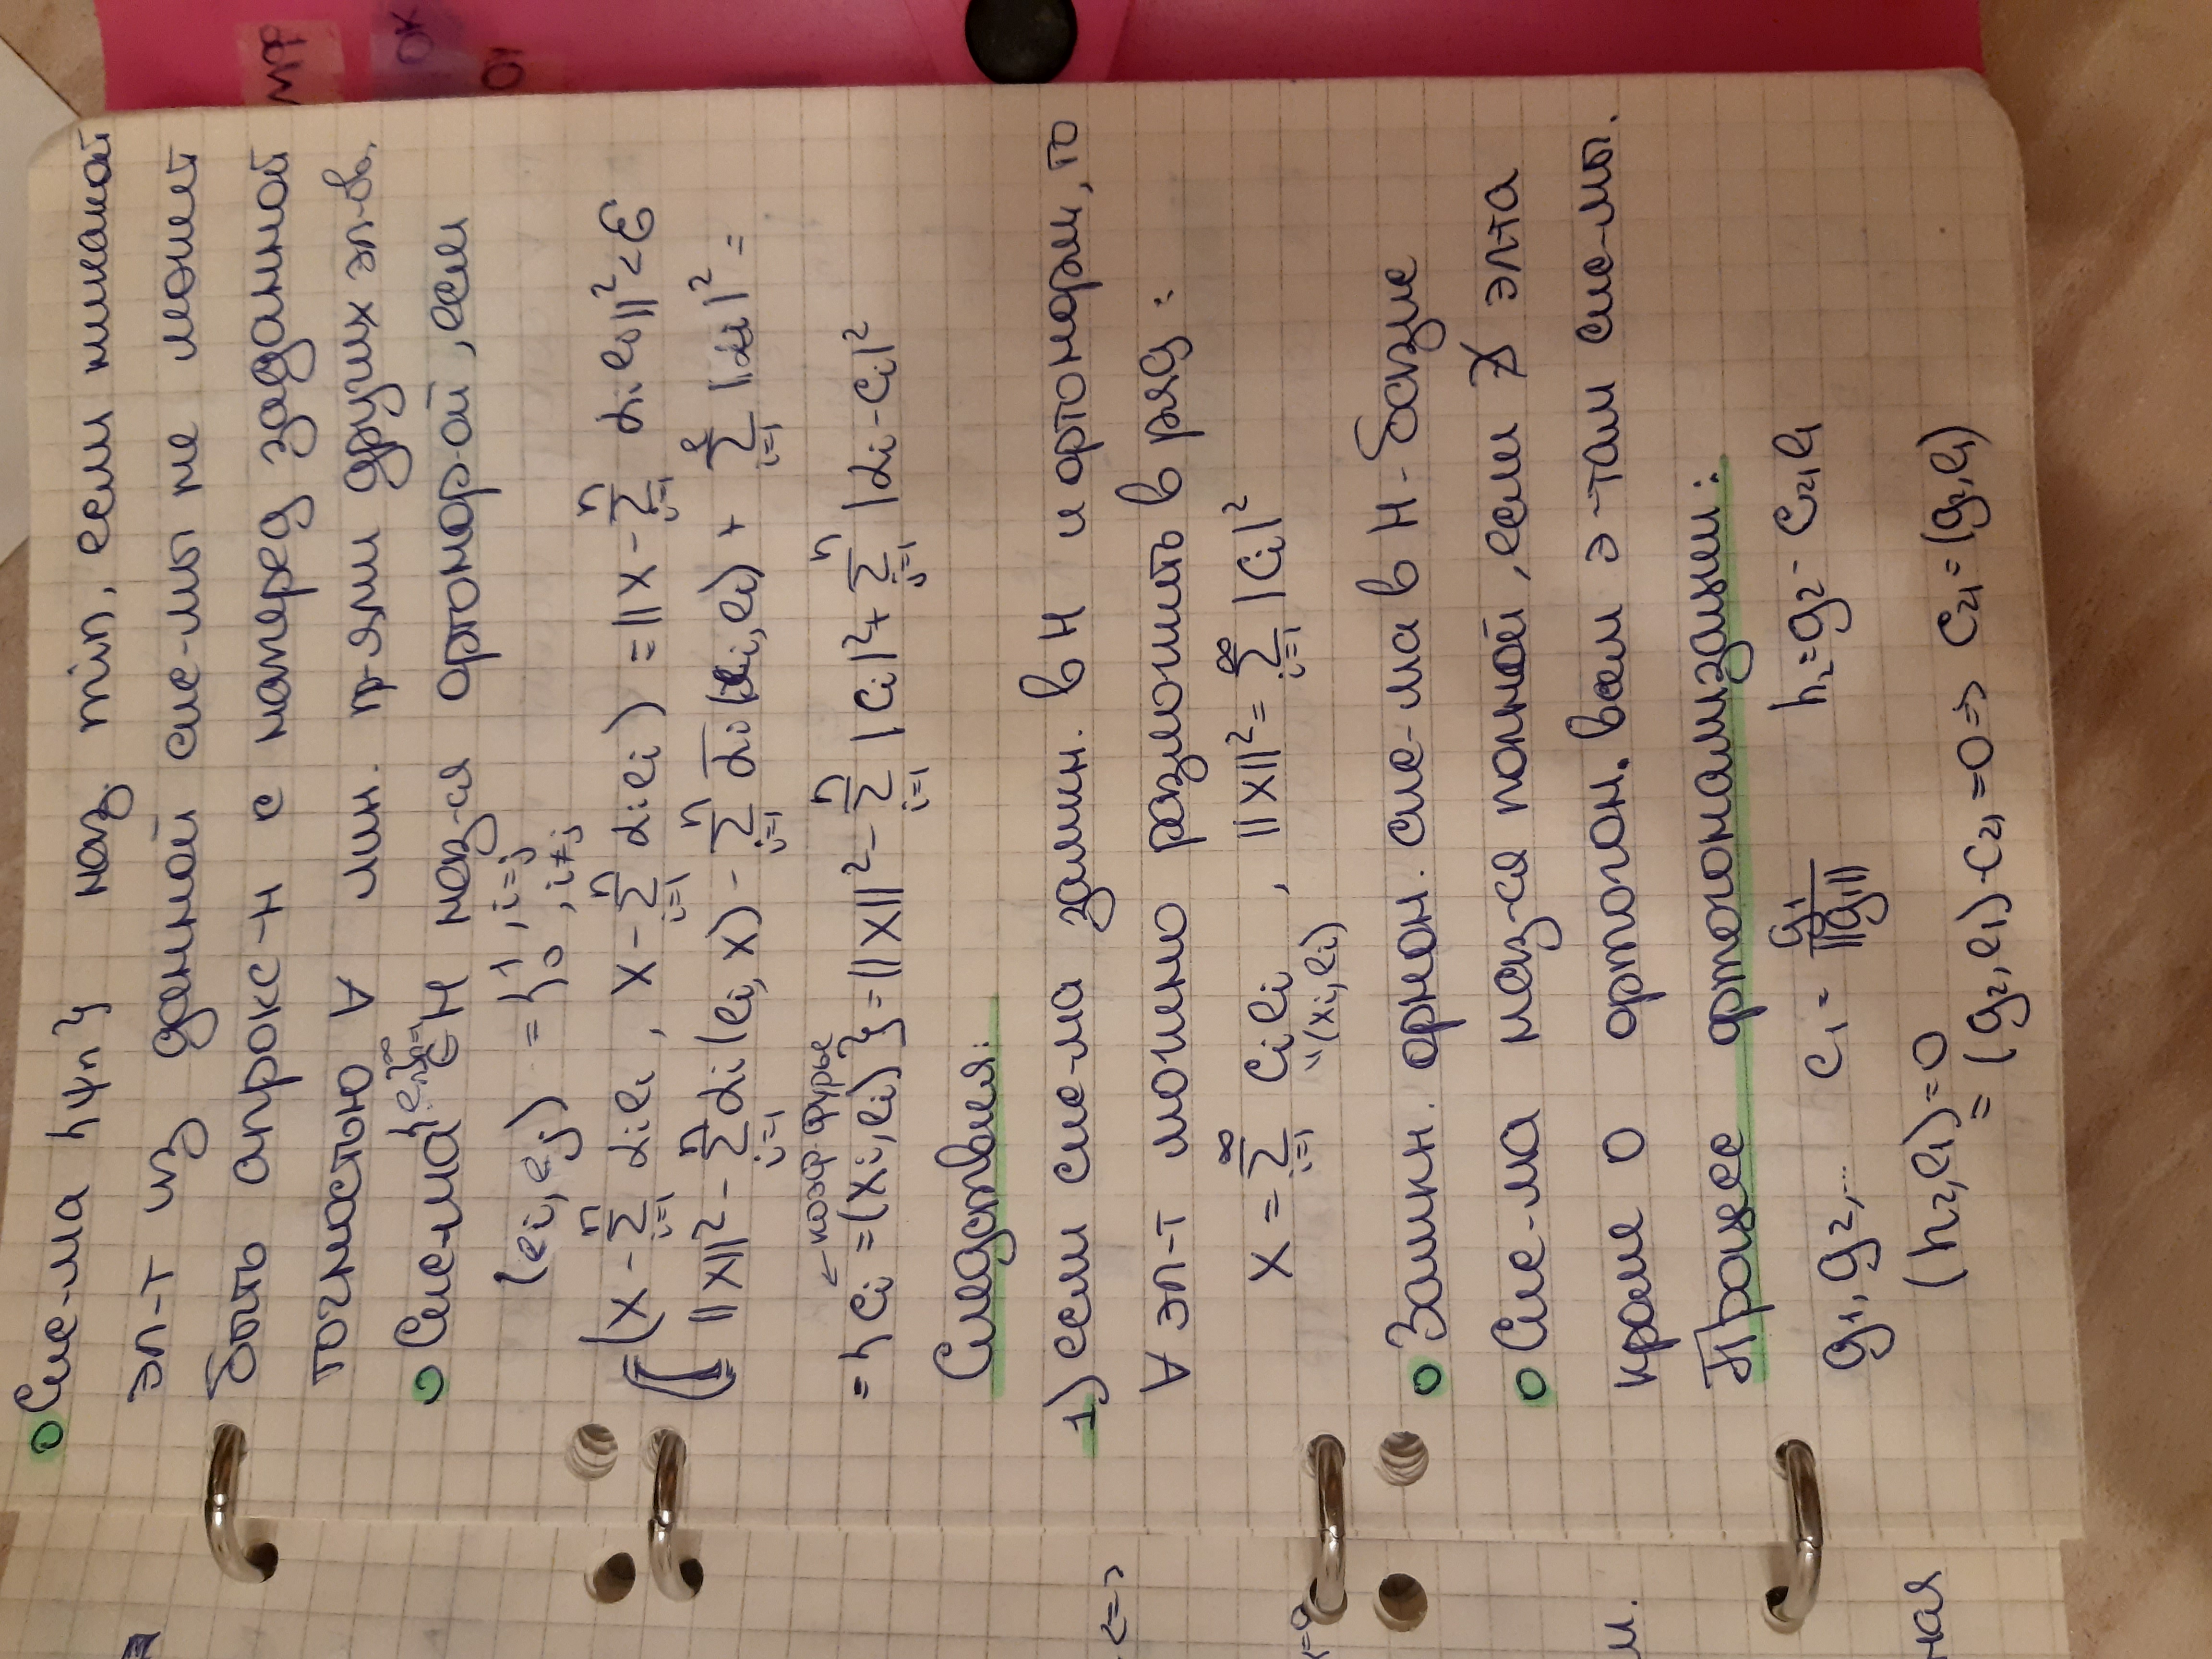 Сис-ма {φn} наз. min, если никакой
эл-т из данной сис-мы не может
быть апрокс-н с наперед заданной
точностью ∀ лин. к-ями других эл-в.
Сис-ма {ei}i=1^∞ ∈ H наз-ся ортонор-ой, если
(ei, ej) = {1, i=j
0, i≠j
(x - Σi=1^n αiei, x - Σi=1^n αiei) = ||x - Σi=1^n αiei||² < ε
||x||² - Σi=1^n αi(ei, x) - Σi=1^n ᾱi(x, ei) + Σi=1^n |αi|² =
← коэф. Фурье
= {ci = (xi, ei)} = ||x||² - Σi=1^n |ci|² + Σi=1^n |αi - ci|²
Следствия:
1) если сис-ма замкн. в H и ортонорм, то
∀ эл-т можно разложить в ряд:
x = Σi=1^∞ ciei , ||x||² = Σi=1^∞ |ci|²
"(xi, ei)
Замкн. орнон. сис-ма в H - базис
Сис-ма наз-ся полной, если ∄ эл-та
кроме 0 ортогон. всем э-там сис-мы.
Процесс ортогонализации:
g1, g2, ... e1 = g1/||g1|| h2 = g2 - c21e1
(h2, e1) = 0
= (g2, e1) - c21 = 0 => c21 = (g2, e1)
<=>
м.
ная
OK